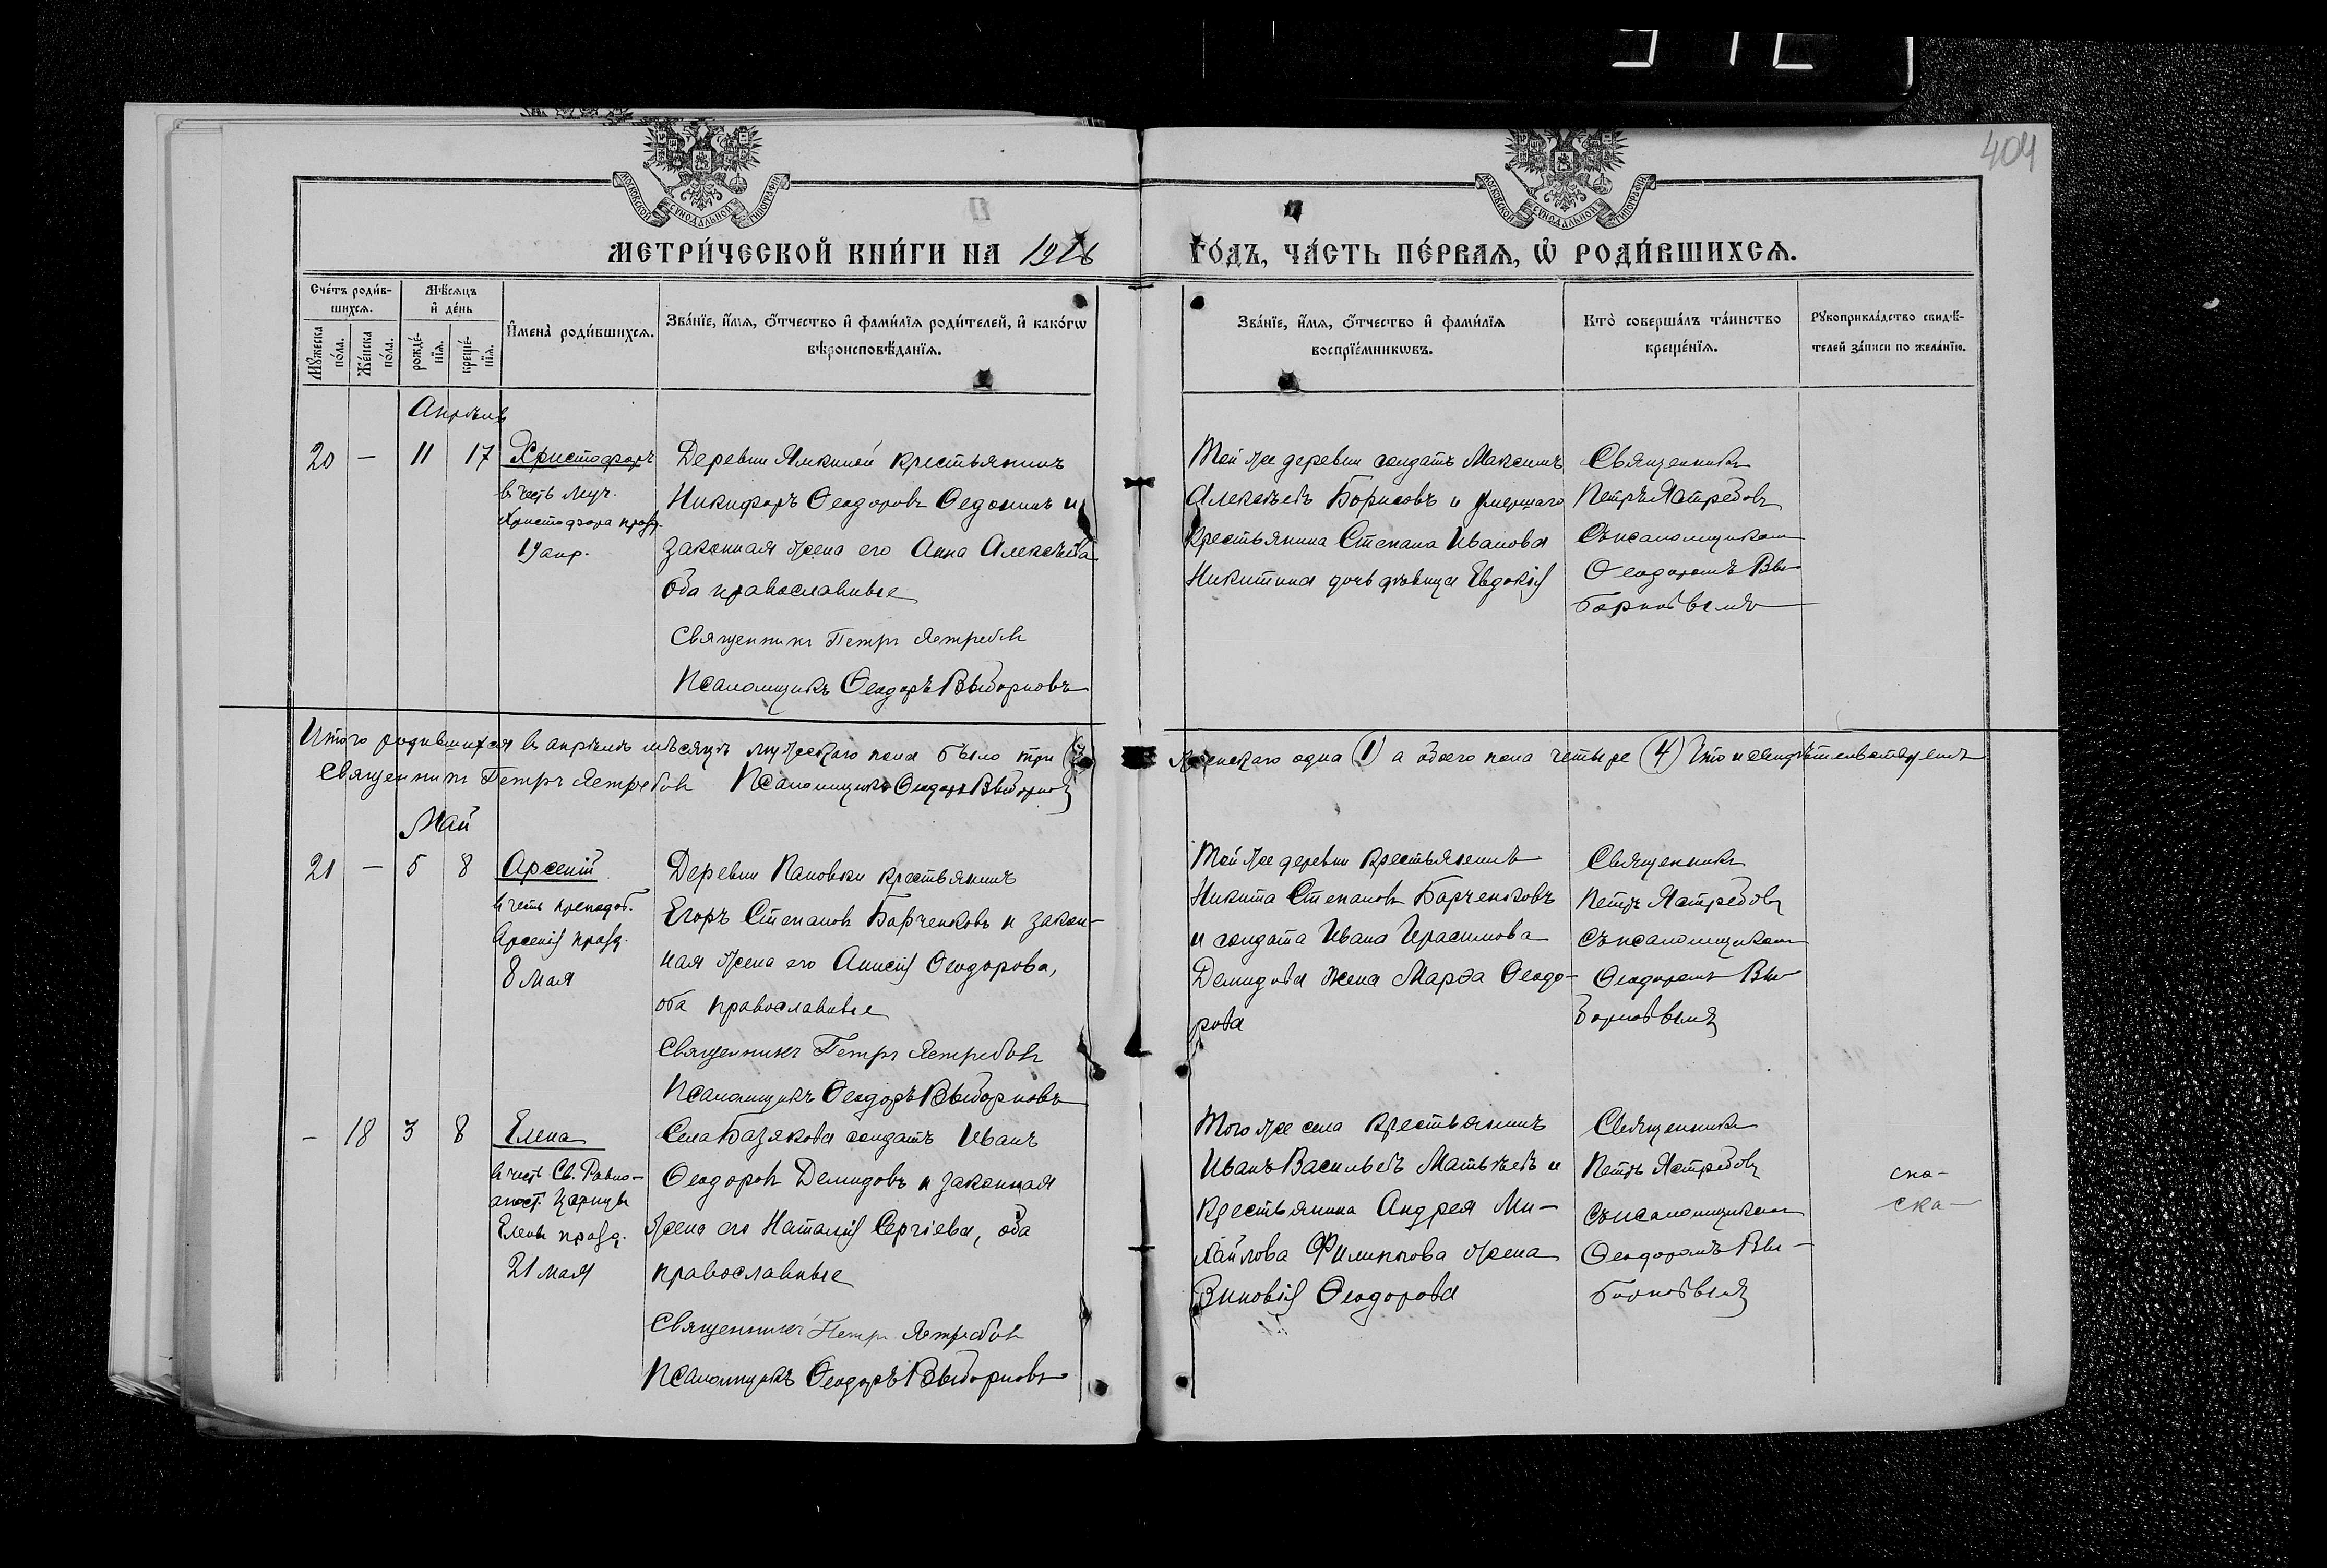 404
МОСКОВСКОЙ СѴНОДАЛЬНОЙ ТИПОГРАФІИ
МОСКОВСКОЙ СѴНОДАЛЬНОЙ ТИПОГРАФІИ
МЕТРИ́ЧЕСКОЙ КНИ́ГИ НА 1916
ГО́ДЪ, ЧА́СТЬ ПЕ́РВАѦ, Ѡ҆ РОДИ́ВШИХСѦ.
Сче́тъ роди́в-
шихсѧ.
Мѣ́сѧцъ
и҆ де́нь
Мꙋ́жеска по́ла.
Же́нска по́ла.
рожде́-нїѧ.
креще́-нїѧ.
И҆мена̀ роди́вшихсѧ.
Зва́нїе, и҆́мѧ, ѻ҆́тчество и҆ фами́лїѧ роди́телей, и҆ како́гѡ
вѣроисповѣ́данїѧ.
Зва́нїе, и҆́мѧ, ѻ҆́тчество и҆ фами́лїѧ
воспрїе́мникѡвъ.
Кто̀ соверша́лъ та́инство
креще́нїѧ.
Рꙋкоприкла́дство свидѣ́-
телей за́писи по жела́нїю.
Апрѣль
20 — 11 17
Христофоръ
въ честь муч.
Христофора празд.
19 апр.
Деревни Ямкиной крестьянинъ
Никифоръ Ѳеодоровъ Ѳедонинъ и
законная жена его Анна Алексѣева
оба православные
Священникъ Петръ Ястребовъ
Псаломщикъ Ѳеодоръ Выборновъ
Той же деревни солдатъ Максимъ
Алексѣевъ Борисовъ и умершаго
крестьянина Степана Иванова
Никитина дочь дѣвица Евдокія
Священникъ
Петръ Ястребовъ
съ псаломщикомъ
Ѳеодоромъ Вы-
борновымъ
Итого родившихся въ апрѣлѣ мѣсяцѣ мужескаго пола было три (3)
женскаго одна (1) а обоего пола четыре (4) Что и свидѣтельствуемъ
Священникъ Петръ Ястребовъ Псаломщикъ Ѳеодоръ Выборновъ
Май
21 — 5 8
Арсеній
въ честь преподоб.
Арсенія празд.
8 мая
Деревни Пановки крестьянинъ
Егоръ Степановъ Барченковъ и закон-
ная жена его Анисія Ѳеодорова,
оба православные
Священникъ Петръ Ястребовъ
Псаломщикъ Ѳеодоръ Выборновъ
Той же деревни крестьянинъ
Никита Степановъ Барченковъ
и солдата Ивана Герасимова
Демидова жена Марѳа Ѳеодо-
рова
Священникъ
Петръ Ястребовъ
съ псаломщикомъ
Ѳеодоромъ Вы-
борновымъ
— 18 3 8
Елена
въ честь Св. Равно-
апост. Царицы
Елены празд.
21 мая
Села Базякова солдатъ Иванъ
Ѳеодоровъ Демидовъ и законная
жена его Наталія Сергіева, оба
православные
Священникъ Петръ Ястребовъ
Псаломщикъ Ѳеодоръ Выборновъ
Того же села крестьянинъ
Иванъ Васильевъ Матвѣевъ и
крестьянина Андрея Ми-
хайлова Филиппова жена
Зиновія Ѳеодорова
Священникъ
Петръ Ястребовъ
съ псаломщикомъ
Ѳеодоромъ Вы-
борновымъ
ска-
ска-